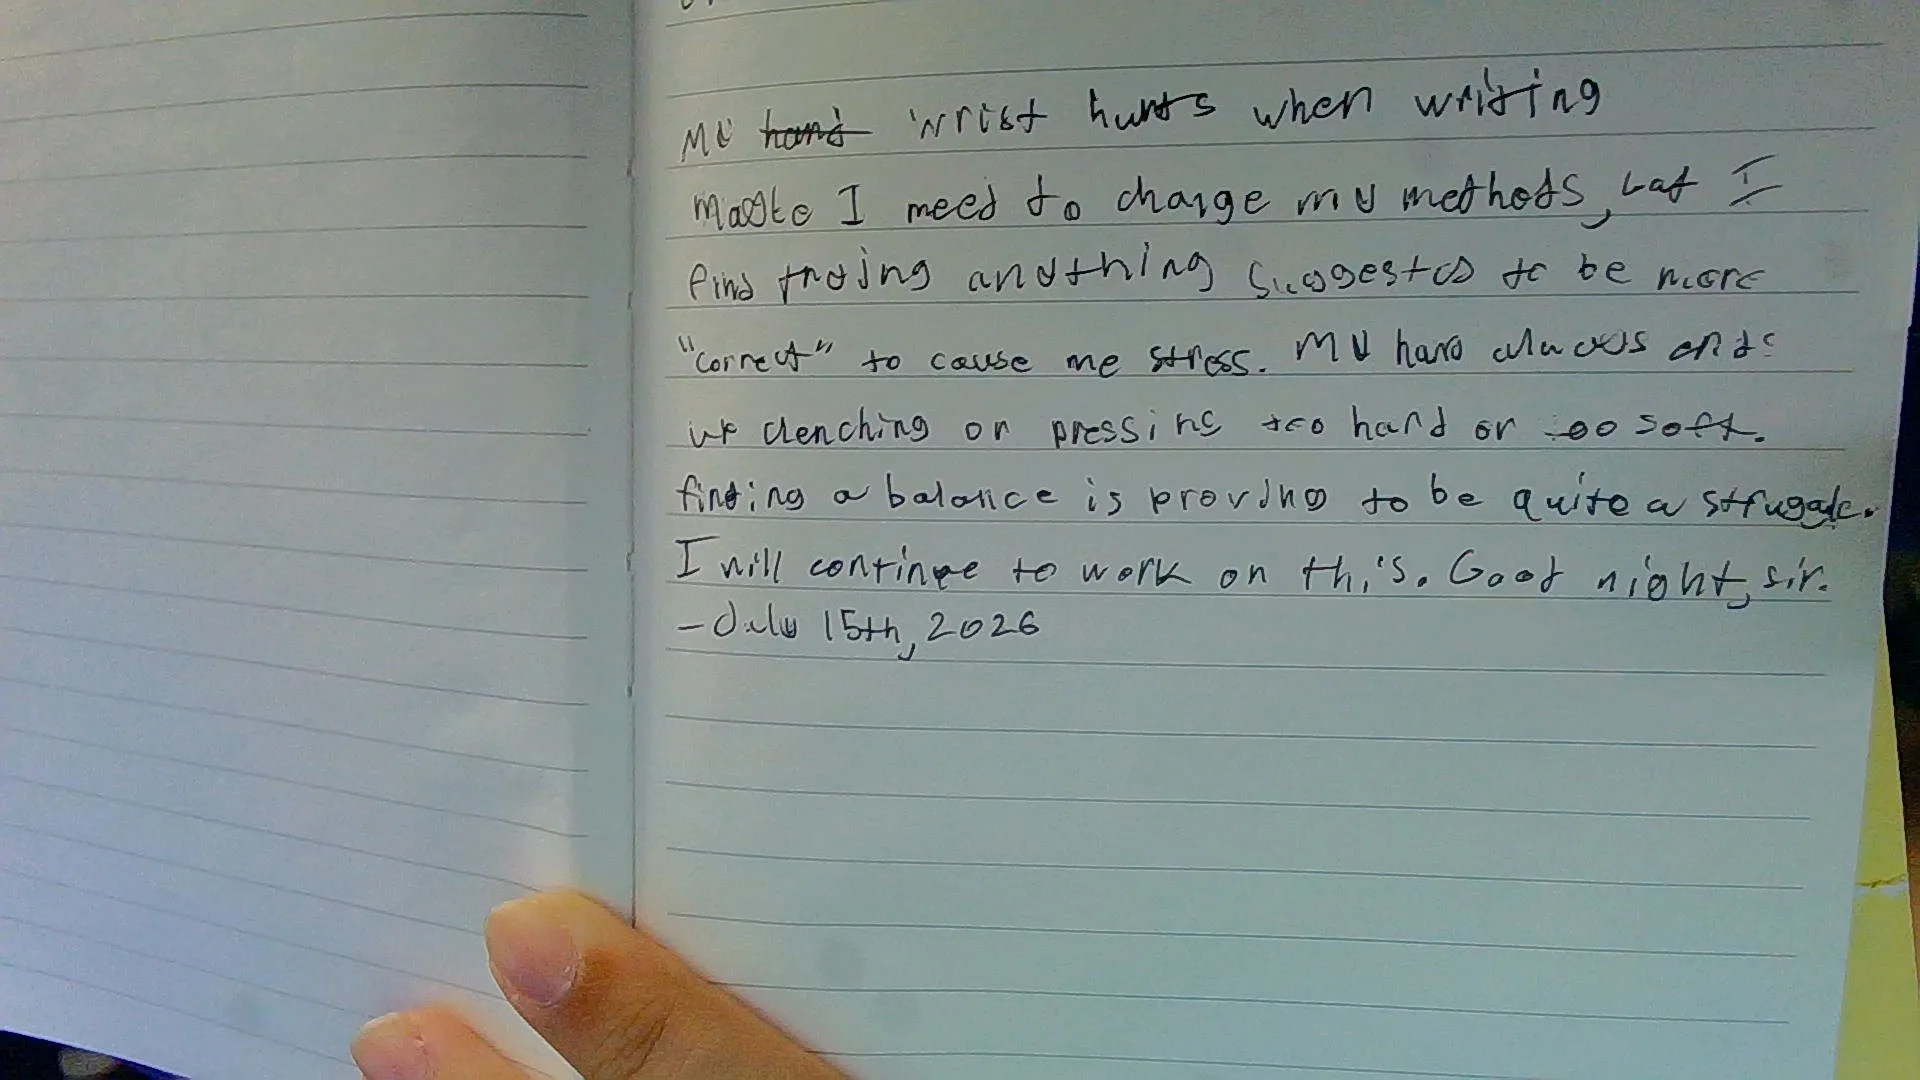 My hand wrist hurts when writing
Maybe I need to change my methods, but I
find trying anything suggested to be more
"correct" to cause me stress. My hand always ends
up clenching or pressing too hard or too soft.
finding a balance is proving to be quite a struggle.
I will continue to work on this. Good night, sir.
- July 15th, 2026